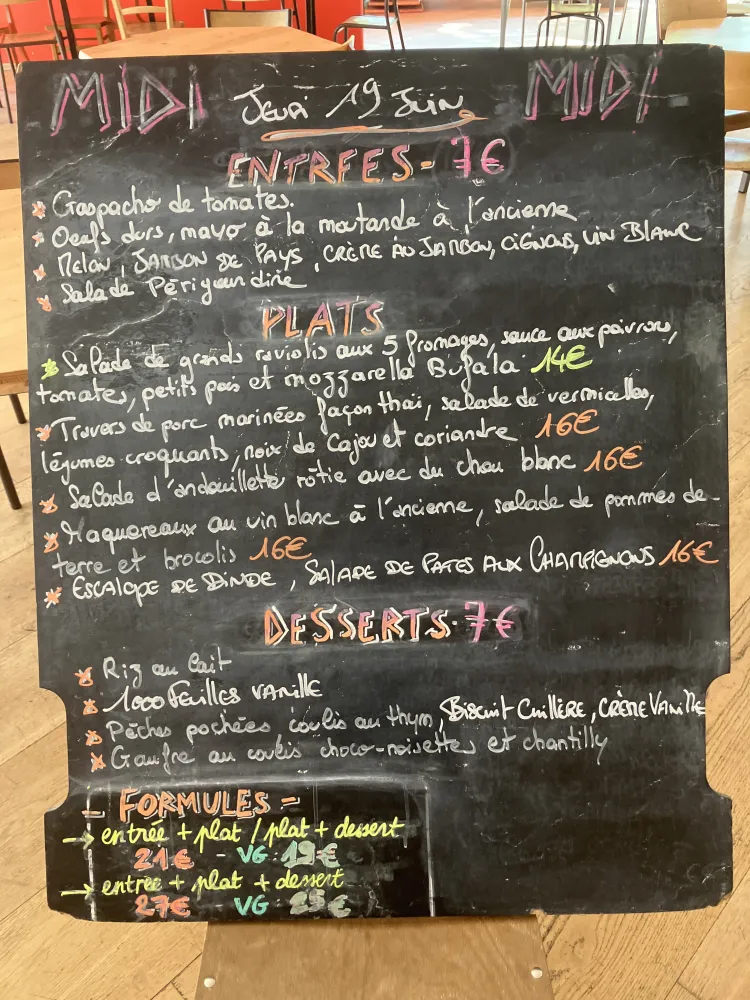 MIDI Jeudi 19 Juin MIDI
ENTRÉES - 7€
* Gaspacho de tomates.
* Oeufs durs, mayo à la moutarde à l'ancienne
* MELON, JAMBON DE PAYS, CRÈME AU JAMBON, OIGNONS, VIN BLANC
* Salade Périgourdine
PLATS
* Salade de grands raviolis aux 5 fromages, sauce aux poivrons,
tomates, petits pois et mozzarella Bufala 14€
* Travers de porc marinées façon thaï, salade de vermicelles,
légumes croquants, noix de Cajou et coriandre 16€
* Salade d'andouillette rôtie avec du chou blanc 16€
* Maquereaux au vin blanc à l'ancienne, salade de pommes de
terre et brocolis 16€
* ESCALOPE DE DINDE, SALADE DE PATES AUX CHAMPIGNONS 16€
DESSERTS - 7€
* Riz au lait
* 1000 FEUILLES VANILLE
* Pêches pochées coulis au thym, BISCUIT CUILLÈRE, CRÈME VANILLE
* Gaufre au coulis choco-noisettes et chantilly
- FORMULES =
→ entrée + plat / plat + dessert
21€ - VG : 19€
→ entrée + plat + dessert
27€ VG 25€